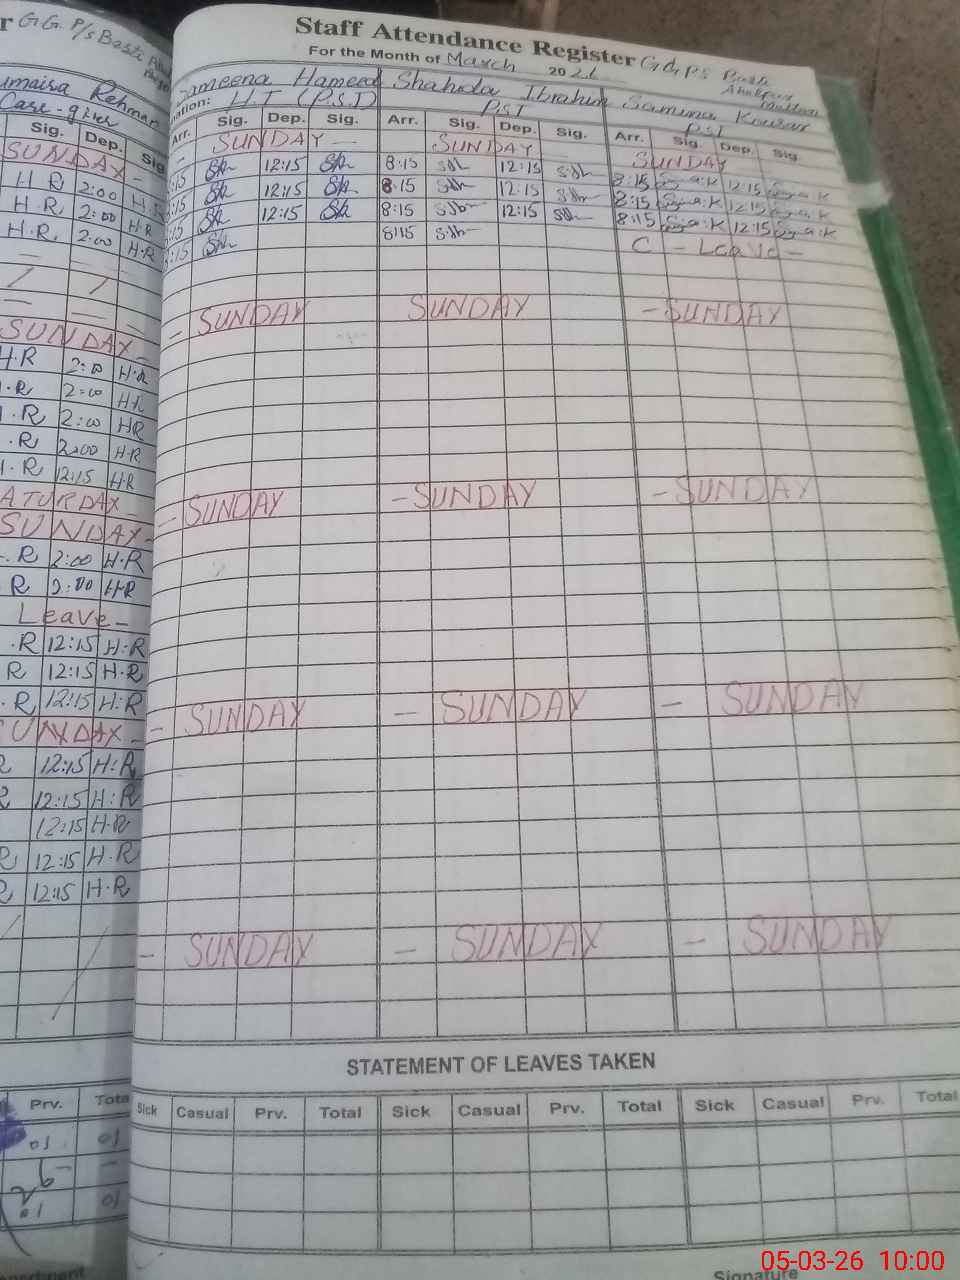 r GG. P/s Basti
Staff Attendance Register GGPS Basti
For the Month of March 2026
umaisa Rehman
Care-giver
Sameena Hameed Shahida Ibrahim Samina Kousar
nation: H.T (P.S.T) P.S.T PST
Sig. Dep. Sig
Arr. Sig. Dep. Sig. Arr. Sig. Dep. Sig. Arr. Sig. Dep. Sig.
SUNDAY -
- SUNDAY - SUNDAY - SUNDAY
H R 2:00 H.R
:15 12:15 8:15 12:15 8:15 12:15
H R 2:00 H.R
:15 12:15 8:15 12:15 8:15 12:15
H.R. 2:00 H.R
:15 12:15 8:15 12:15 8:15 12:15
:15 8:15 C - Leave -
SUNDAY -
- SUNDAY SUNDAY - SUNDAY
H.R 2:00 H.R
.R 2:00 HR
.R 2:00 HR
.R 2:00 H.R
.R 12:15 HR
ATURDAY -
- SUNDAY - SUNDAY - SUNDAY
SUNDAY -
.R 2:00 H.R
R 2:00 H.R
Leave -
.R 12:15 H:R
R 12:15 H.R
.R 12:15 H:R
SUNDAY -
- SUNDAY - SUNDAY - SUNDAY
R 12:15 H:R
R 12:15 H:R
12:15 H.R
R 12:15 H.R
R 12:15 H.R
- SUNDAY - SUNDAY - SUNDAY
STATEMENT OF LEAVES TAKEN
Prv. Tota
Sick Casual Prv. Total Sick Casual Prv. Total Sick Casual Prv. Total
01 01
01 01
partment
Signature
05-03-26 10:00